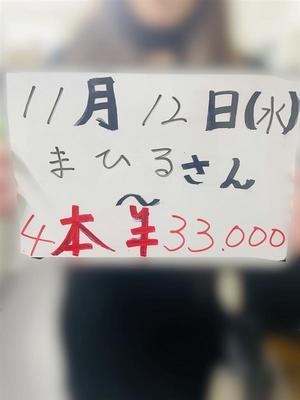 11月12日(水)
まひるさん
〜
4本¥33.000